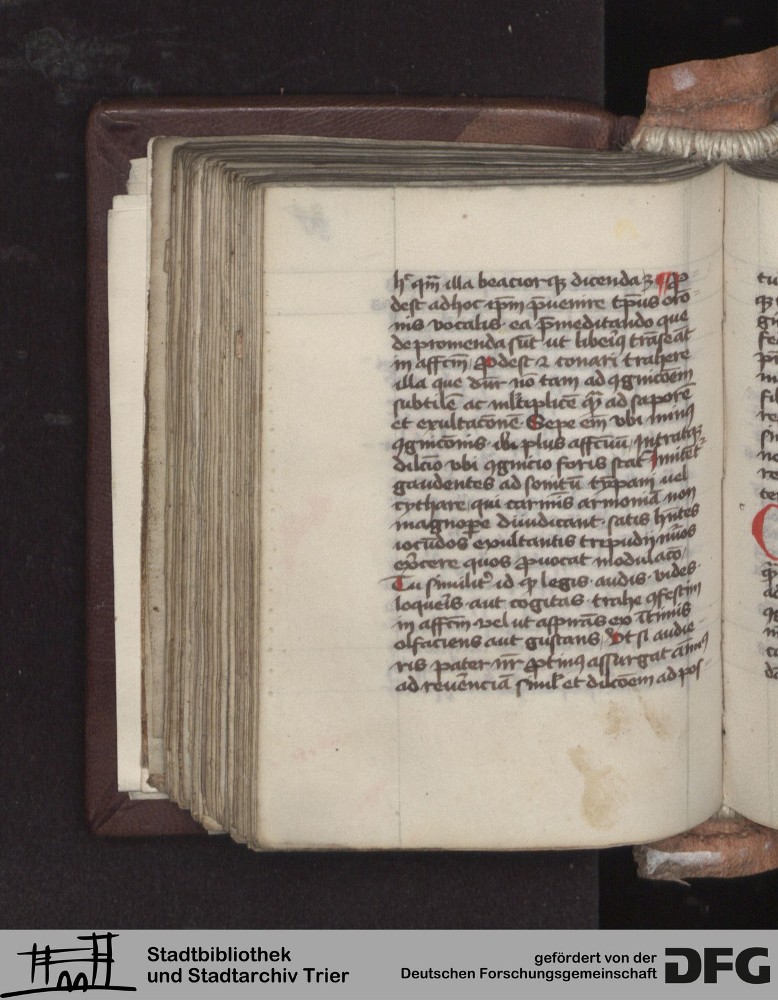 hͥ qm̄ illa beaciorqꝫ dicenda ꝫ ¶ Ꝓ
dest adhoc ip̄m p̄uenire tp̄us oro
nis vocalis ea p̄meditando que
depromenda sūt ut libeiꝰ trāseāt
in affcm̄ ꝓdest ⁊ conari trahere
illa que dn̄r nō tam ad ꝯgnicōem
subtilē ac ml̄tiplicē qͣ̄ ad saporē
et exultacōnē Sepe em̄ vbi minꝰ
ꝯgnicōnis ibi plus affcuū Intratqꝫ
dilcīo vbi ꝯgnicio foris stat Inniteꝰt
gaudentes ad sonitū tȳpani uel
cythare qui carmīs armoniā non
magnopꝑe diiudicant satis hn̄tes
iocūdos exultantis trepudij nūos
ex̄cere quos ꝓuocat modulacō
Tu similitꝰ id qͩ legis audis vides
loquel̄s aut cogitas trahe ꝯfestim
in affcm̄ vel ut asp̄nās ex ītimis
olfaciens aut gustans Vt si audie
ris pater nr̄ ꝓtinꝰ assurgat aīmꝰ
ad reuēnciā simiľ et dilcōem ad pos
Stadtbibliothek
und Stadtarchiv Trier
gefördert von der
Deutschen Forschungsgemeinschaft
DFG